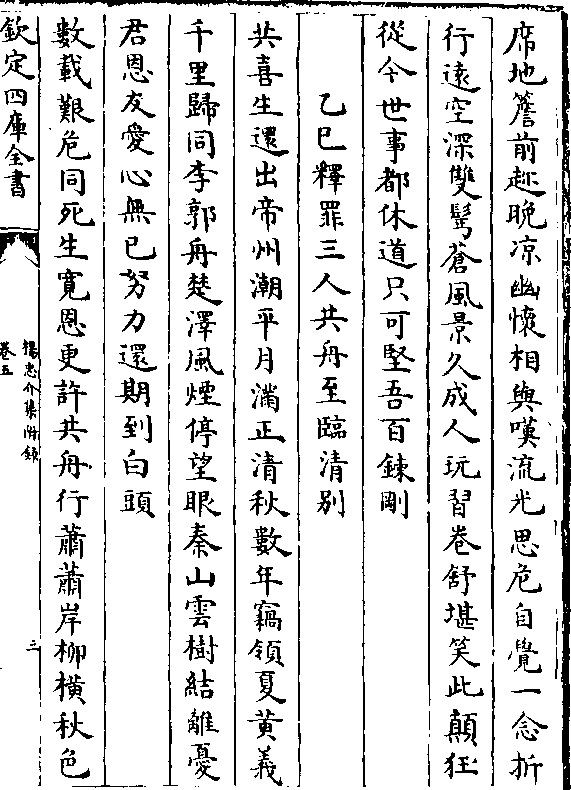 席地簷前趂晚凉幽懷相與嘆流光思危自覺一念折
行遠空深雙鬂蒼風景久成人玩習卷舒堪笑此顛狂
從今世事都休道只可堅吾百鍊剛
乙巳釋罪三人共舟至臨清别
共喜生還出帝州潮平月滿正清秋數年竊領夏黄義
千里歸同李郭舟楚澤風煙停望眼秦山雲樹結離憂
君恩友愛心無已努力還期到白頭
數載艱危同死生寛恩更許共舟行蕭蕭岸柳橫秋色
欽定四庫全書
楊忠介集附録
卷五
三